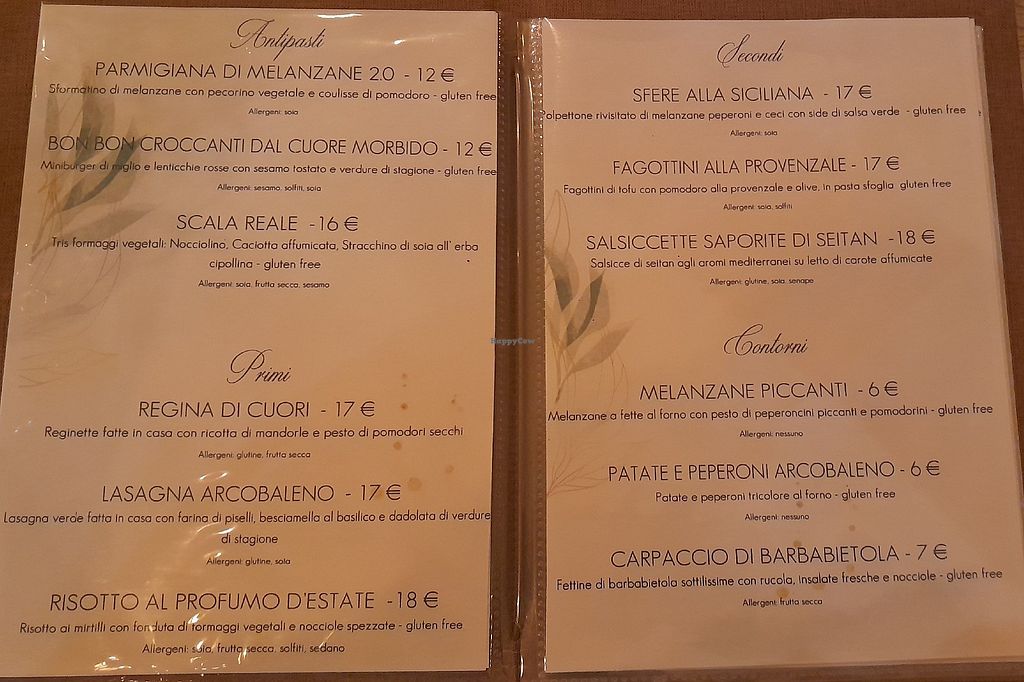 Antipasti
PARMIGIANA DI MELANZANE 2.0 - 12 €
Sformatino di melanzane con pecorino vegetale e coulisse di pomodoro - gluten free
Allergeni: soia
BON BON CROCCANTI DAL CUORE MORBIDO - 12 €
Miniburger di miglio e lenticchie rosse con sesamo tostato e verdure di stagione - gluten free
Allergeni: sesamo, solfiti, soia
SCALA REALE - 16 €
Tris formaggi vegetali: Nocciolino, Caciotta affumicata, Stracchino di soia all' erba
cipollina - gluten free
Allergeni: soia, frutta secca, sesamo
Primi
REGINA DI CUORI - 17 €
Reginette fatte in casa con ricotta di mandorle e pesto di pomodori secchi
Allergeni: glutine, frutta secca
LASAGNA ARCOBALENO - 17 €
Lasagna verde fatta in casa con farina di piselli, besciamella al basilico e dadolata di verdure
di stagione
Allergeni: glutine, soia
RISOTTO AL PROFUMO D'ESTATE - 18 €
Risotto ai mirtilli con fonduta di formaggi vegetali e nocciole spezzate - gluten free
Allergeni: soia, frutta secca, solfiti, sedano
Secondi
SFERE ALLA SICILIANA - 17 €
olpettone rivisitato di melanzane peperoni e ceci con side di salsa verde - gluten free
Allergeni: soia
FAGOTTINI ALLA PROVENZALE - 17 €
Fagottini di tofu con pomodoro alla provenzale e olive, in pasta sfoglia gluten free
Allergeni: soia, solfiti
SALSICCETTE SAPORITE DI SEITAN - 18 €
Salsicce di seitan agli aromi mediterranei su letto di carote affumicate
Allergeni: glutine, soia, senape
Contorni
MELANZANE PICCANTI - 6 €
Melanzane a fette al forno con pesto di peperoncini piccanti e pomodorini - gluten free
Allergeni: nessuno
PATATE E PEPERONI ARCOBALENO - 6 €
Patate e peperoni tricolore al forno - gluten free
Allergeni: nessuno
CARPACCIO DI BARBABIETOLA - 7 €
Fettine di barbabietola sottilissime con rucola, insalate fresche e nocciole - gluten free
Allergeni: frutta secca
HappyCow